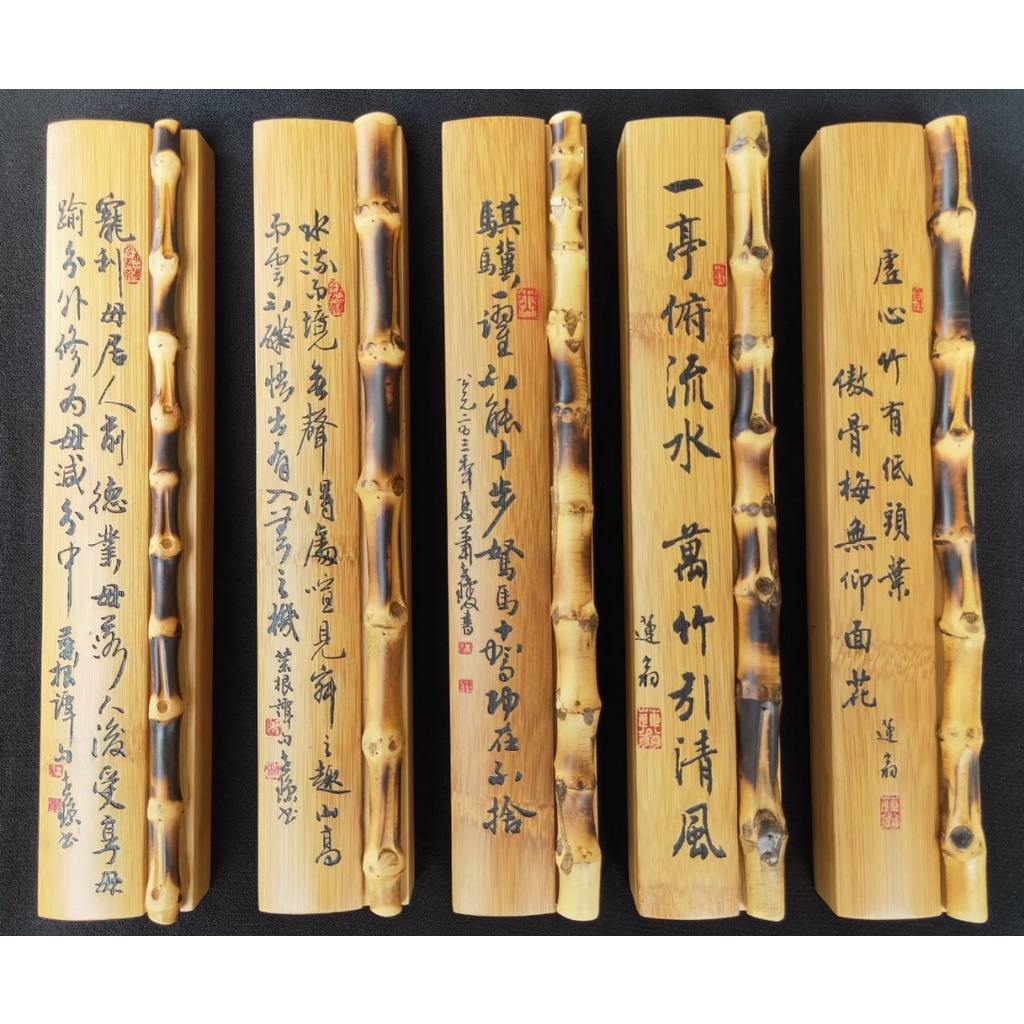 虛心竹有低頭葉
傲骨梅無仰面花
蓮翁
一亭俯流水 萬竹引清風
蓮翁
騏驥一躍不能十步駑馬十駕功在不捨
水流而境無聲得處喧見寂之趣山高
而雲不礙悟出有入無之機 菜根譚句
寵利毋居人前德業毋落人後受享毋
踰分外修為毋減分中 菜根譚句